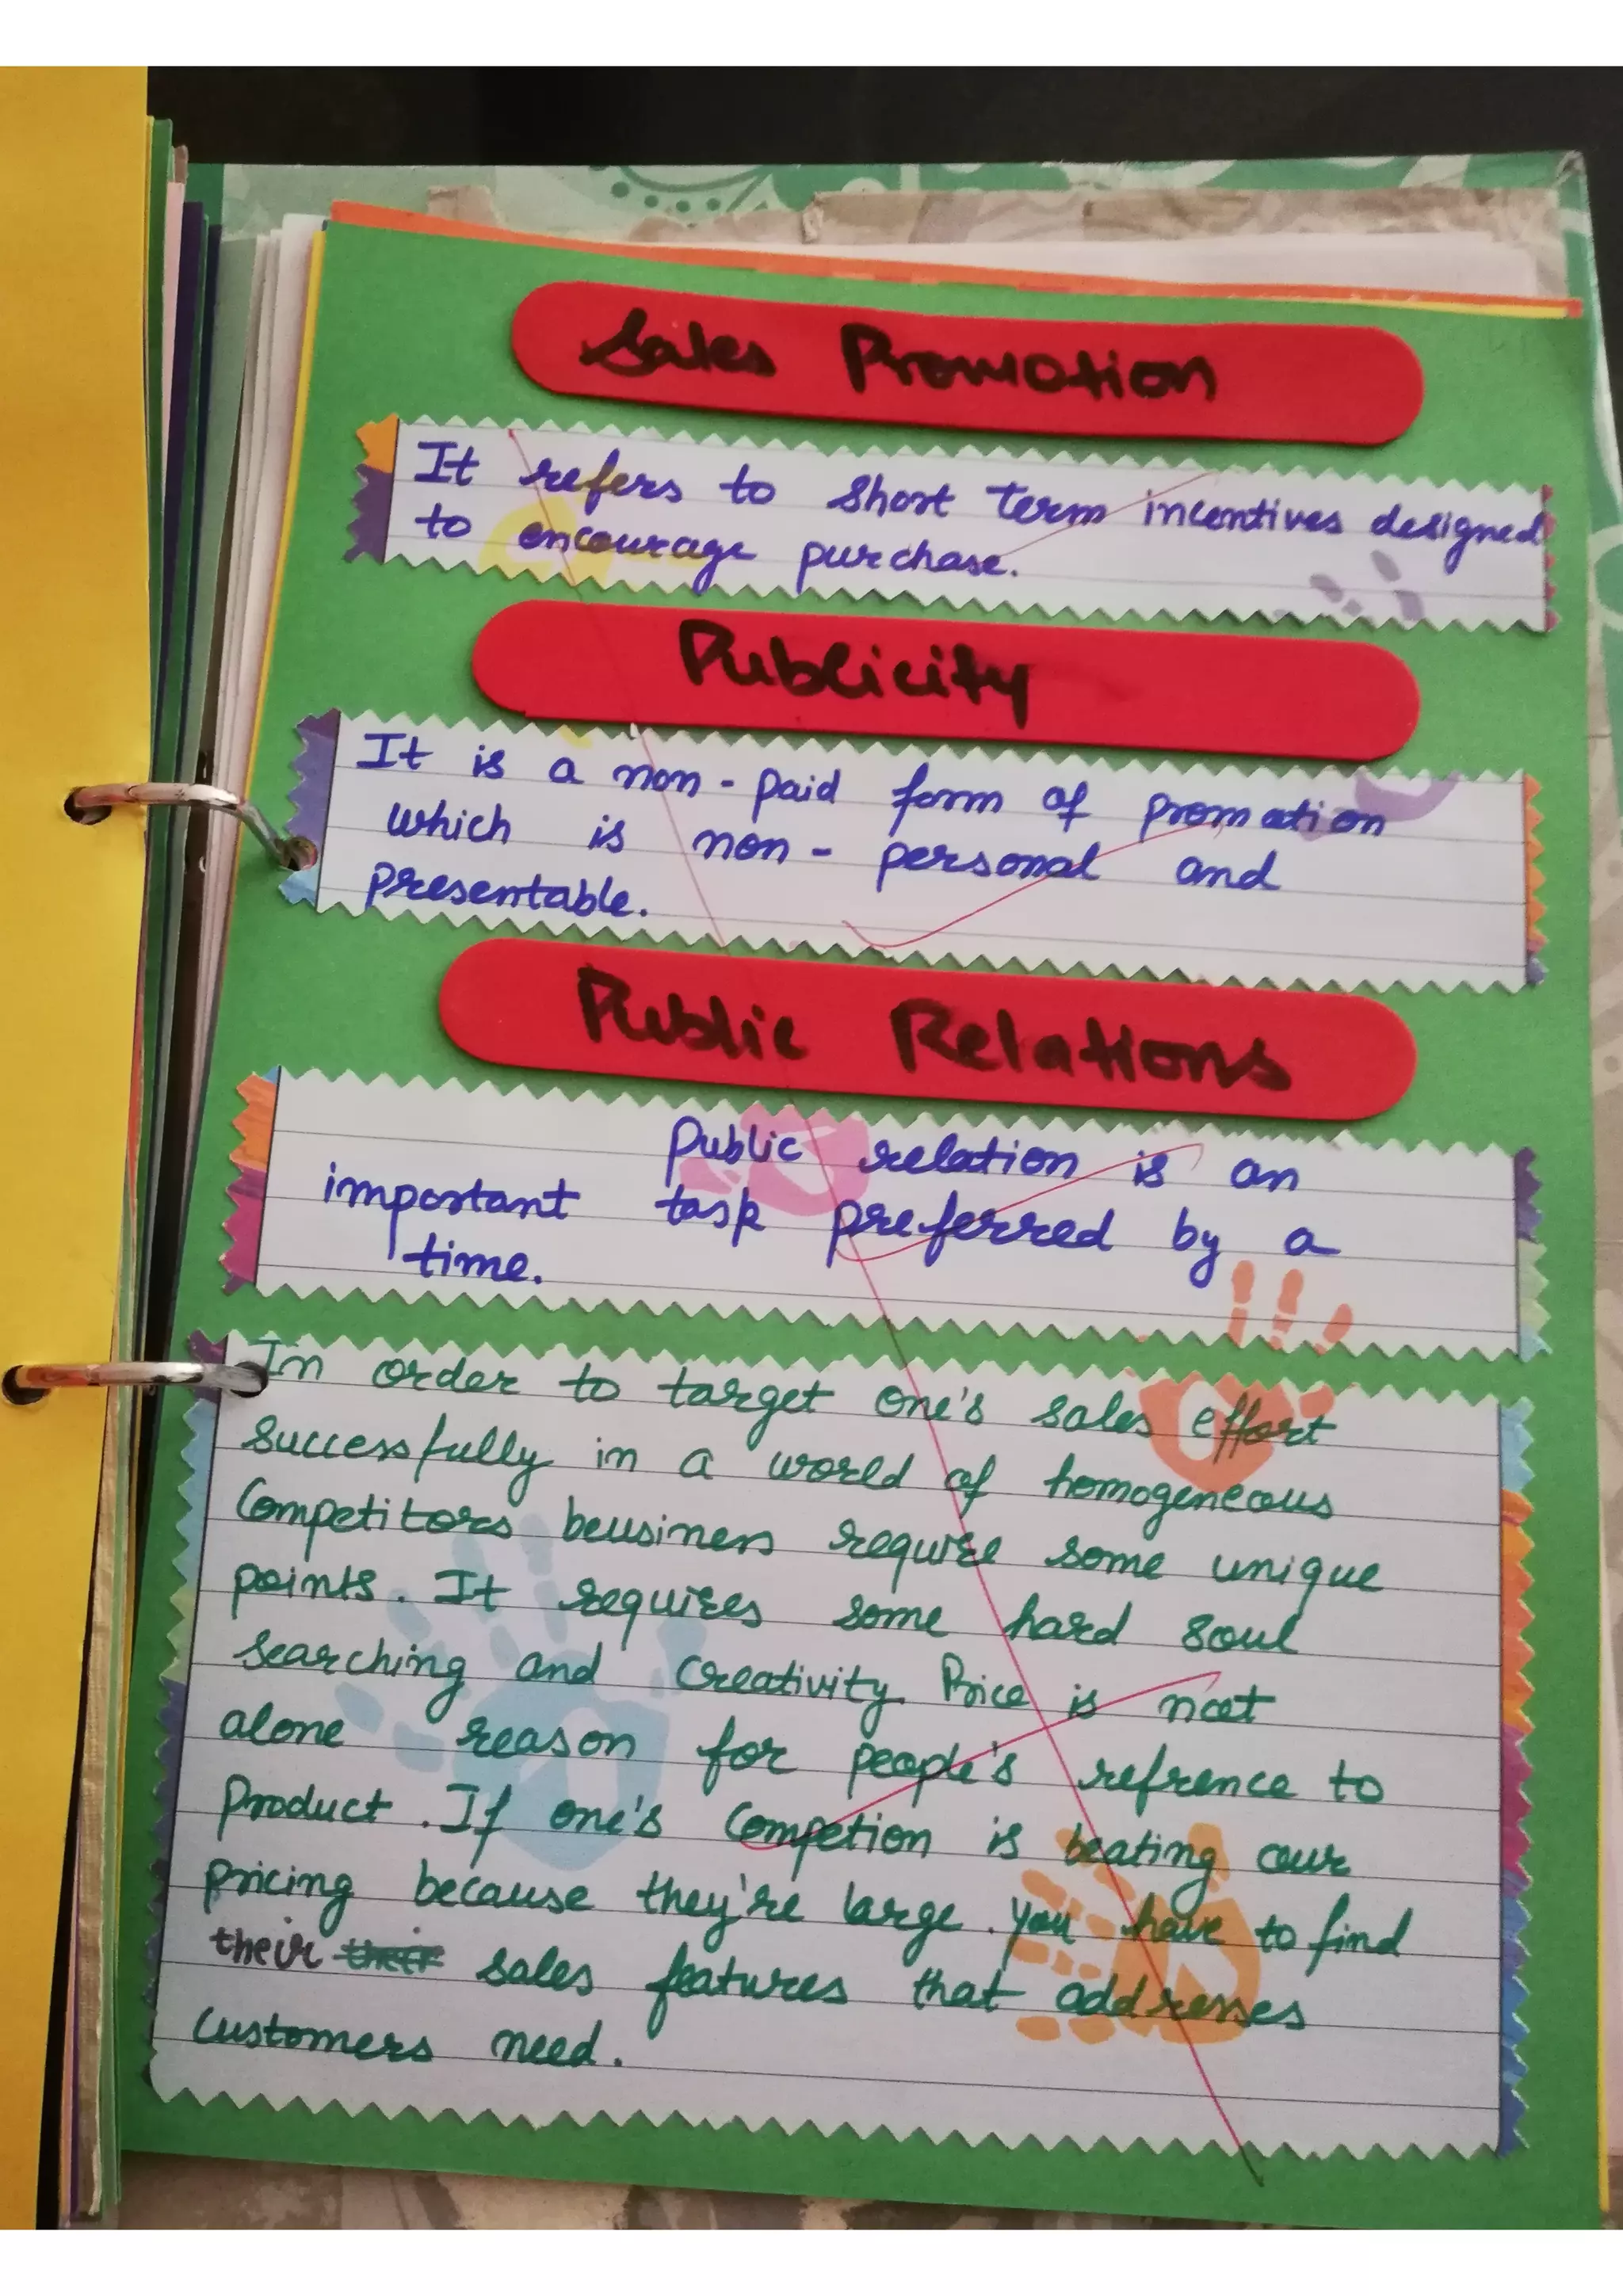 Sales Promotion
It refers to short term incentives designed
to encourage purchase.
Publicity
It is a non-paid form of promotion
which is non-personal and
presentable.
Public Relations
Public relation is an
important task preferred by a
time.
In order to target one's sales effort
successfully in a world of homogeneous
Competitors beusiness require some unique
points. It requires some hard soul
searching and creativity. Price is not
alone reason for people's refrence to
Product. If one's Competion is beating our
pricing because they're large. you have to find
their their sales features that addresses
customers need.